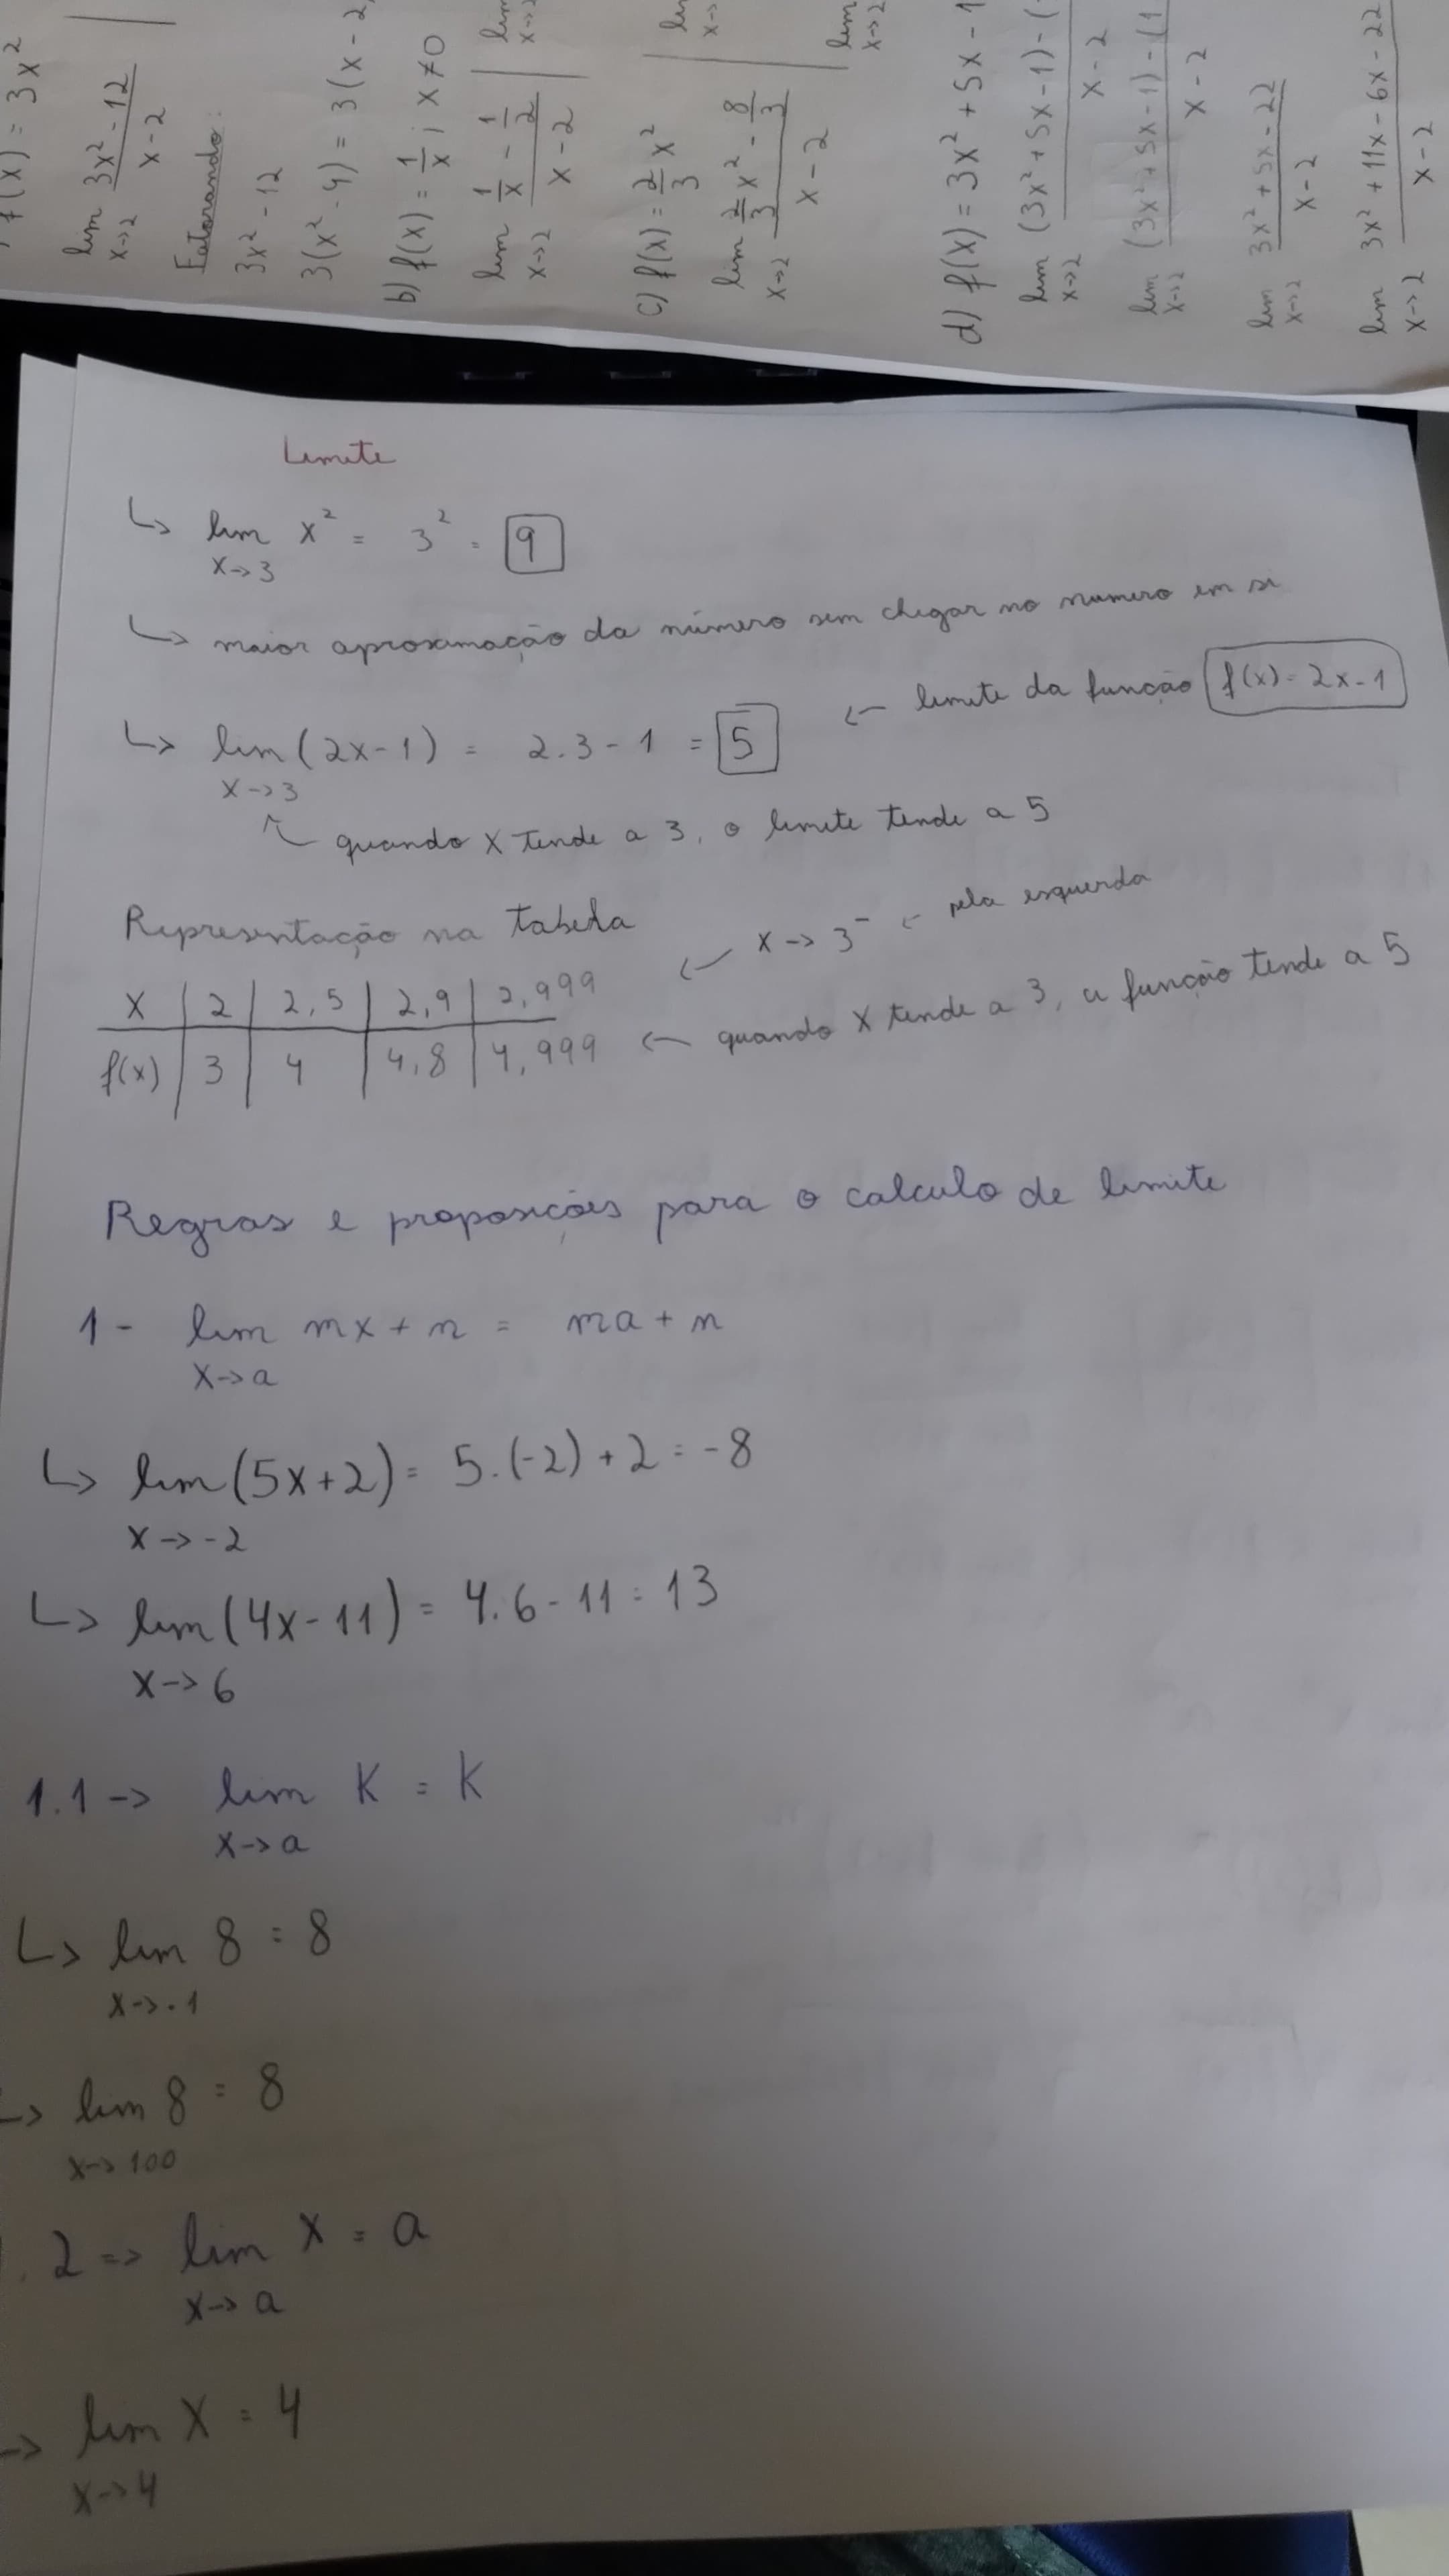 f(x) = 3x²
lim 3x² - 12
x→2 x - 2
Fatorando:
3x² - 12
3(x² - 4) = 3(x - 2
b) f(x) = 1/x ; x ≠ 0
lim 1/x - 1/2
x→2 x - 2
lim
x→2
c) f(x) = 2/3 x²
lim 2/3 x² - 8/3
x→2 x - 2
lim
x→2
d) f(x) = 3x² + 5x - 1
lim (3x² + 5x - 1) - (
x→2 x - 2
lim (3x² + 5x - 1) - (1
x→2 x - 2
lim 3x² + 5x - 22
x→2 x - 2
lim 3x² + 11x - 6x - 22
x→2 x - 2
Limite
↳ lim x² = 3² = 9
x→3
↳ maior aproximação da número sem chegar no numero em si
↳ lim (2x-1) = 2.3 - 1 = 5 ← limite da função f(x) = 2x-1
x→3
↖ quando x tende a 3, o limite tende a 5
Representação na tabela
x | 2 | 2,5 | 2,9 | 2,999 ← x→3⁻ ← pela esquerda
f(x) | 3 | 4 | 4,8 | 4,999 ← quando x tende a 3, a função tende a 5
Regras e proposições para o calculo de limite
1- lim mx + n = ma + n
x→a
↳ lim (5x+2) = 5.(-2) + 2 = -8
x→-2
↳ lim (4x-11) = 4.6 - 11 = 13
x→6
1.1 → lim K = K
x→a
↳ lim 8 = 8
x→-1
→ lim 8 = 8
x→100
.2 => lim x = a
x→a
→ lim x = 4
x→4